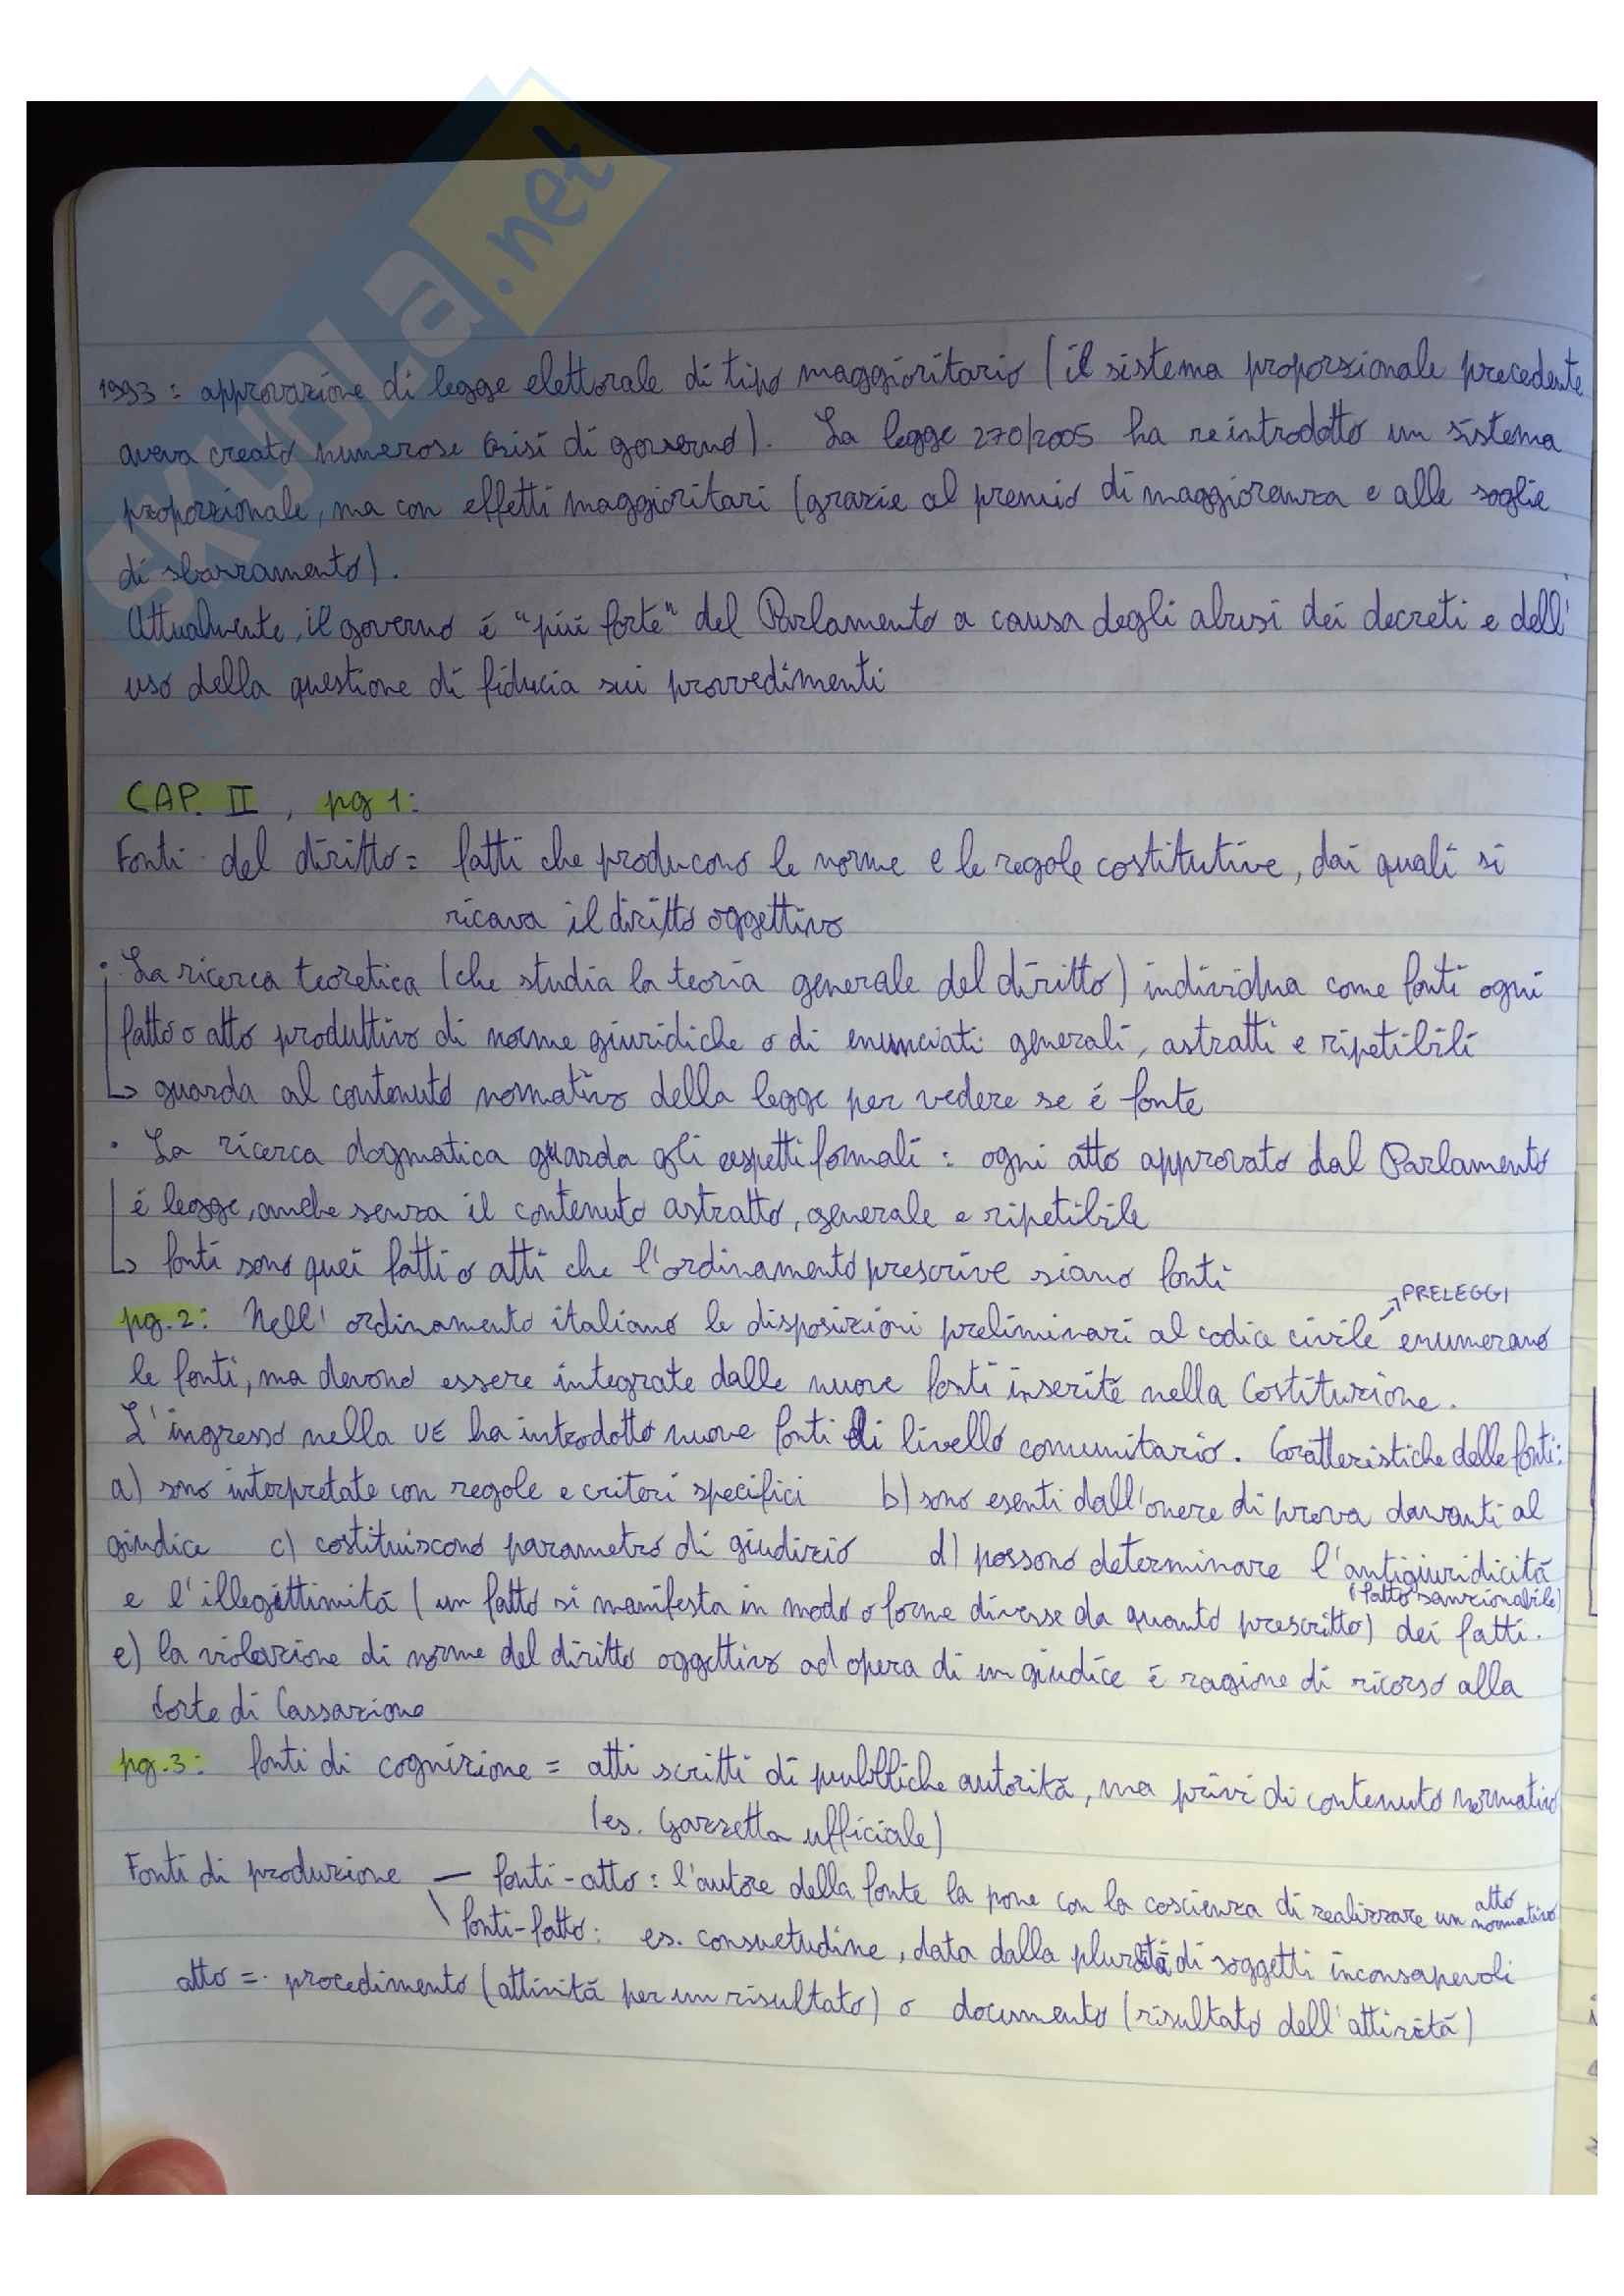 SKUOLa.net
1993: approvazione di legge elettorale di tipo maggioritario (il sistema proporzionale precedente
aveva creato numerose crisi di governo). La legge 270/2005 ha reintrodotto un sistema
proporzionale, ma con effetti maggioritari (grazie al premio di maggioranza e alle soglie
di sbarramento).
Attualmente, il governo é "piú forte" del Parlamento a causa degli abusi dei decreti e dell'
uso della questione di fiducia sui provvedimenti
CAP. II, pg 1:
Fonti del diritto = fatti che producono le norme e le regole costitutive, dai quali si
ricava il diritto oggettivo
· La ricerca teoretica (che studia la teoria generale del diritto) individua come fonti ogni
fatto o atto produttivo di norme giuridiche o di enunciati generali, astratti e ripetibili
↳ guarda al contenuto normativo della legge per vedere se é fonte
· La ricerca dogmatica guarda gli aspetti formali: ogni atto approvato dal Parlamento
é legge, anche senza il contenuto astratto, generale e ripetibile
↳ fonti sono quei fatti o atti che l'ordinamento prescrive siano fonti
pg.2: Nell' ordinamento italiano le disposizioni preliminari al codice civile → PRELEGGI enumerano
le fonti, ma devono essere integrate dalle nuove fonti inserite nella Costituzione.
L'ingresso nella UE ha introdotto nuove fonti di livello comunitario. Caratteristiche delle fonti:
a) sono interpretate con regole e criteri specifici b) sono esenti dall'onere di prova davanti al
giudice c) costituiscono parametro di giudizio d) possono determinare l'antigiuridicitá
(fatto sanzionabile)
e l'illegittimitá (un fatto si manifesta in modo o forme diverse da quanto prescritto) dei fatti.
e) la violazione di norme del diritto oggettivo ad opera di un giudice é ragione di ricorso alla
Corte di Cassazione
pg.3: fonti di cognizione = atti scritti di pubbliche autoritá, ma privi di contenuto normativo
(es. Gazzetta ufficiale)
Fonti di produzione — fonti-atto: l'autore della fonte la pone con la coscienza di realizzare un atto normativo
\ fonti-fatto: es. consuetudine, data dalla pluralitá di soggetti inconsapevoli
atto = procedimento (attivitá per un risultato) o documento (risultato dell'attivitá)